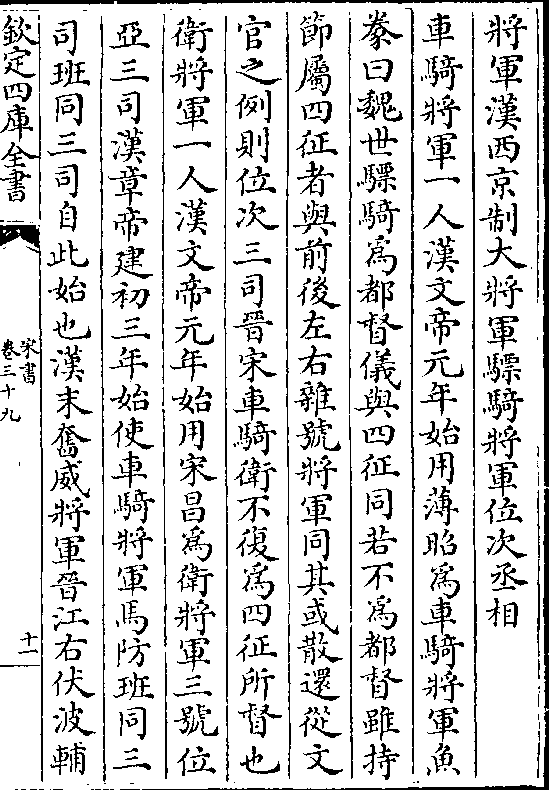 將軍漢西京制大將軍驃騎將軍位次丞相
車騎將軍一人漢文帝元年始用薄昭為車騎將軍魚
豢曰魏世驃騎為都督儀與四征同若不為都督雖持
節屬四征者與前後左右雜號將軍同其或散還從文
官之例則位次三司晉宋車騎衛不復為四征所督也
衛將軍一人漢文帝元年始用宋昌為衛將軍三號位
亞三司漢章帝建初三年始使車騎將軍馬防班同三
司班同三司自此始也漢末奮威將軍晉江右伏波輔
欽定四庫全書
宋書
卷三十九
十一